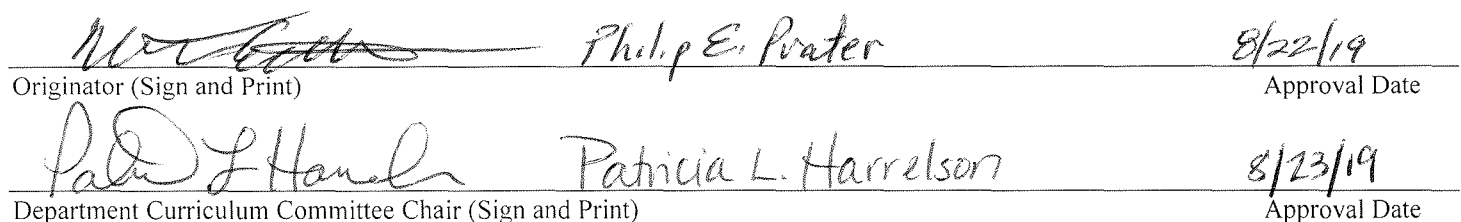 Philip E. Prater 8/22/19
Originator (Sign and Print) Approval Date
Patricia L. Harrelson 8/23/19
Department Curriculum Committee Chair (Sign and Print) Approval Date